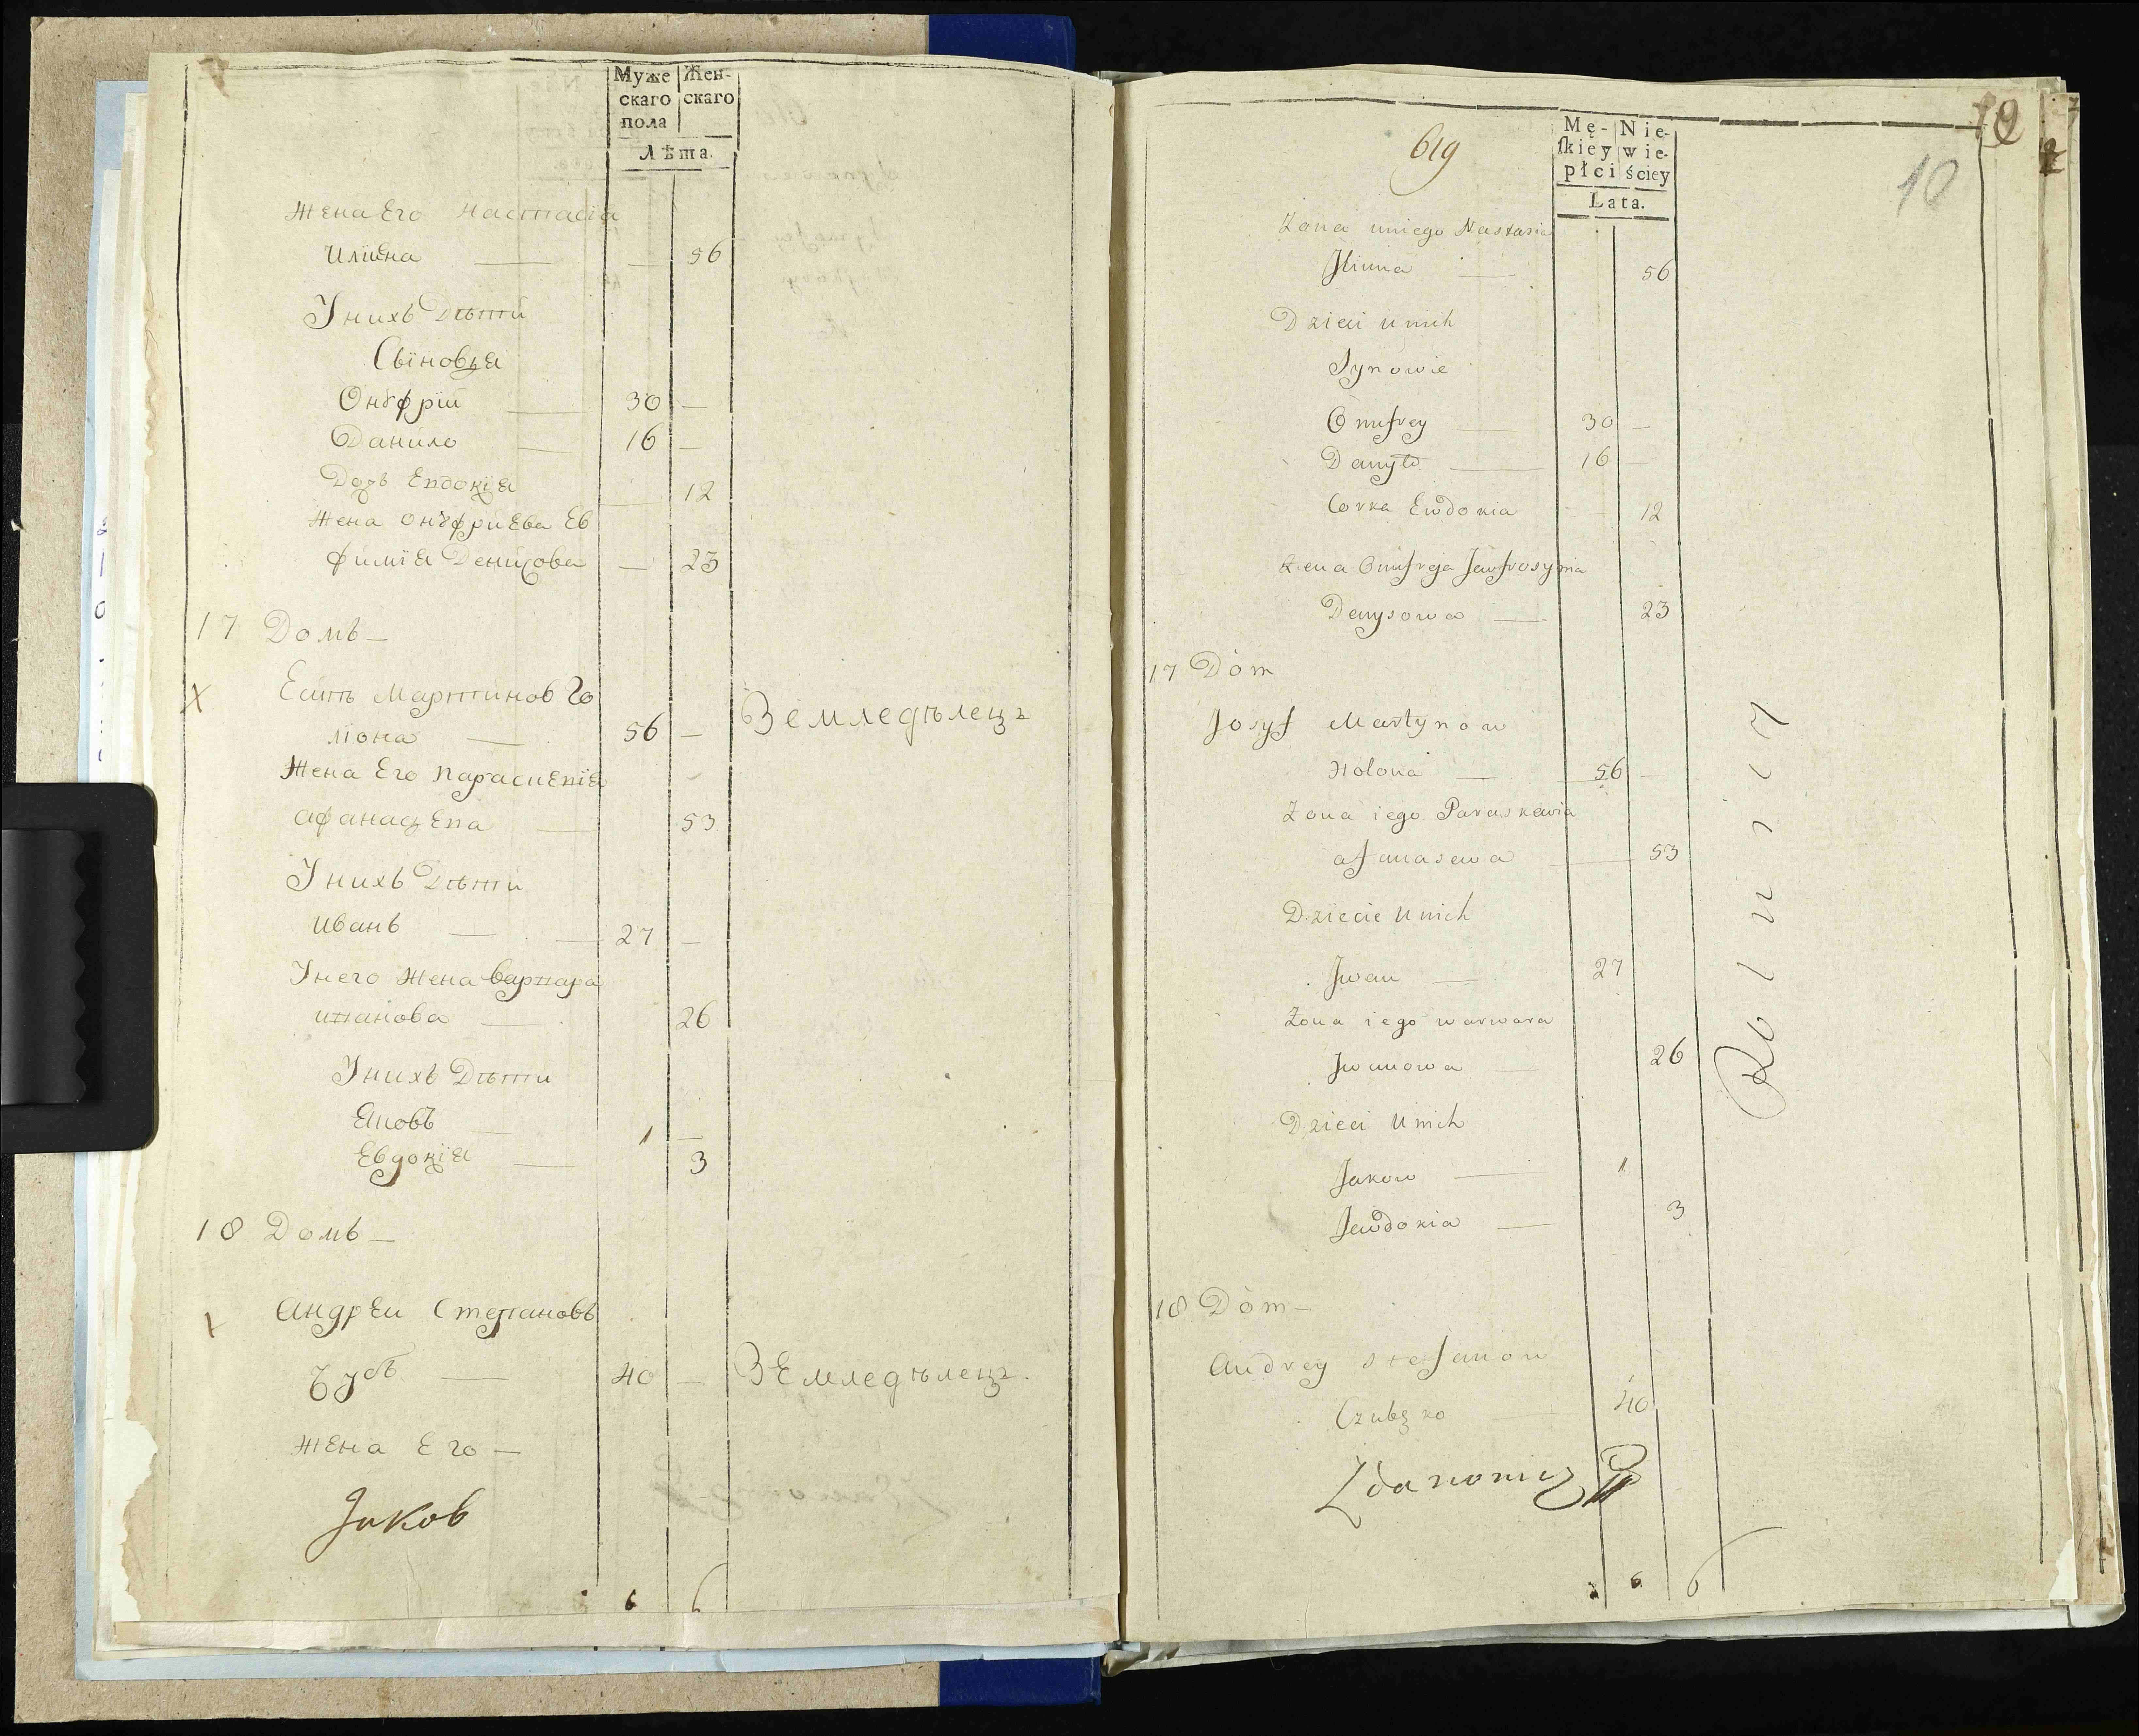 Муже
скаго
пола
Жен-
скаго
Лѣта.
Жена Его Настасія
Илїина — — 56
У нихъ Дѣти
Сыновья
Онуфрїй — 30 —
Данило — 16 —
Дочь Евдокія — 12
Жена Онуфриева Ев
фимїя Денисова — 23
17 Домъ —
х Есипъ Мартиновъ Го
лїона — 56 — Земледѣлецъ
Жена Его Параскевїя
Афанасьева — 53
У нихъ Дѣти
Иванъ — — 27 —
У него Жена Варвара
Иванова — 26
У нихъ Дѣти
Яковъ — 1 —
Евдокія — 3
18 Домъ —
х Андрей Степановъ
Чубъ — 40 — Земледѣлецъ.
Жена Его —
Jakob
6 6
619
10
Mę-
ſkiey
płci
Nie-
wie-
ściey
Lata.
10
Zona uniego Nastasia
Jlinna — 56
Dzieci u nich
Synowie
Onufrey — 30 —
Danyło — 16 —
Corka Ewdokia 12
Zena Onufreja Jawfrosynia
Denysowa — 23
17 Dom
Josyf Martynow
Holona — 56 —
Zona iego Paraskawia
afanasewa — 53
Dziecie u nich
Jwan — 27
Zona iego warwara
Jwanowa — 26
Dzieci u nich
Jakow — 1
Jewdokia — 3
Rolnicy
18 Dom —
Andrey Stefanow
Czubzko — 40
6 6